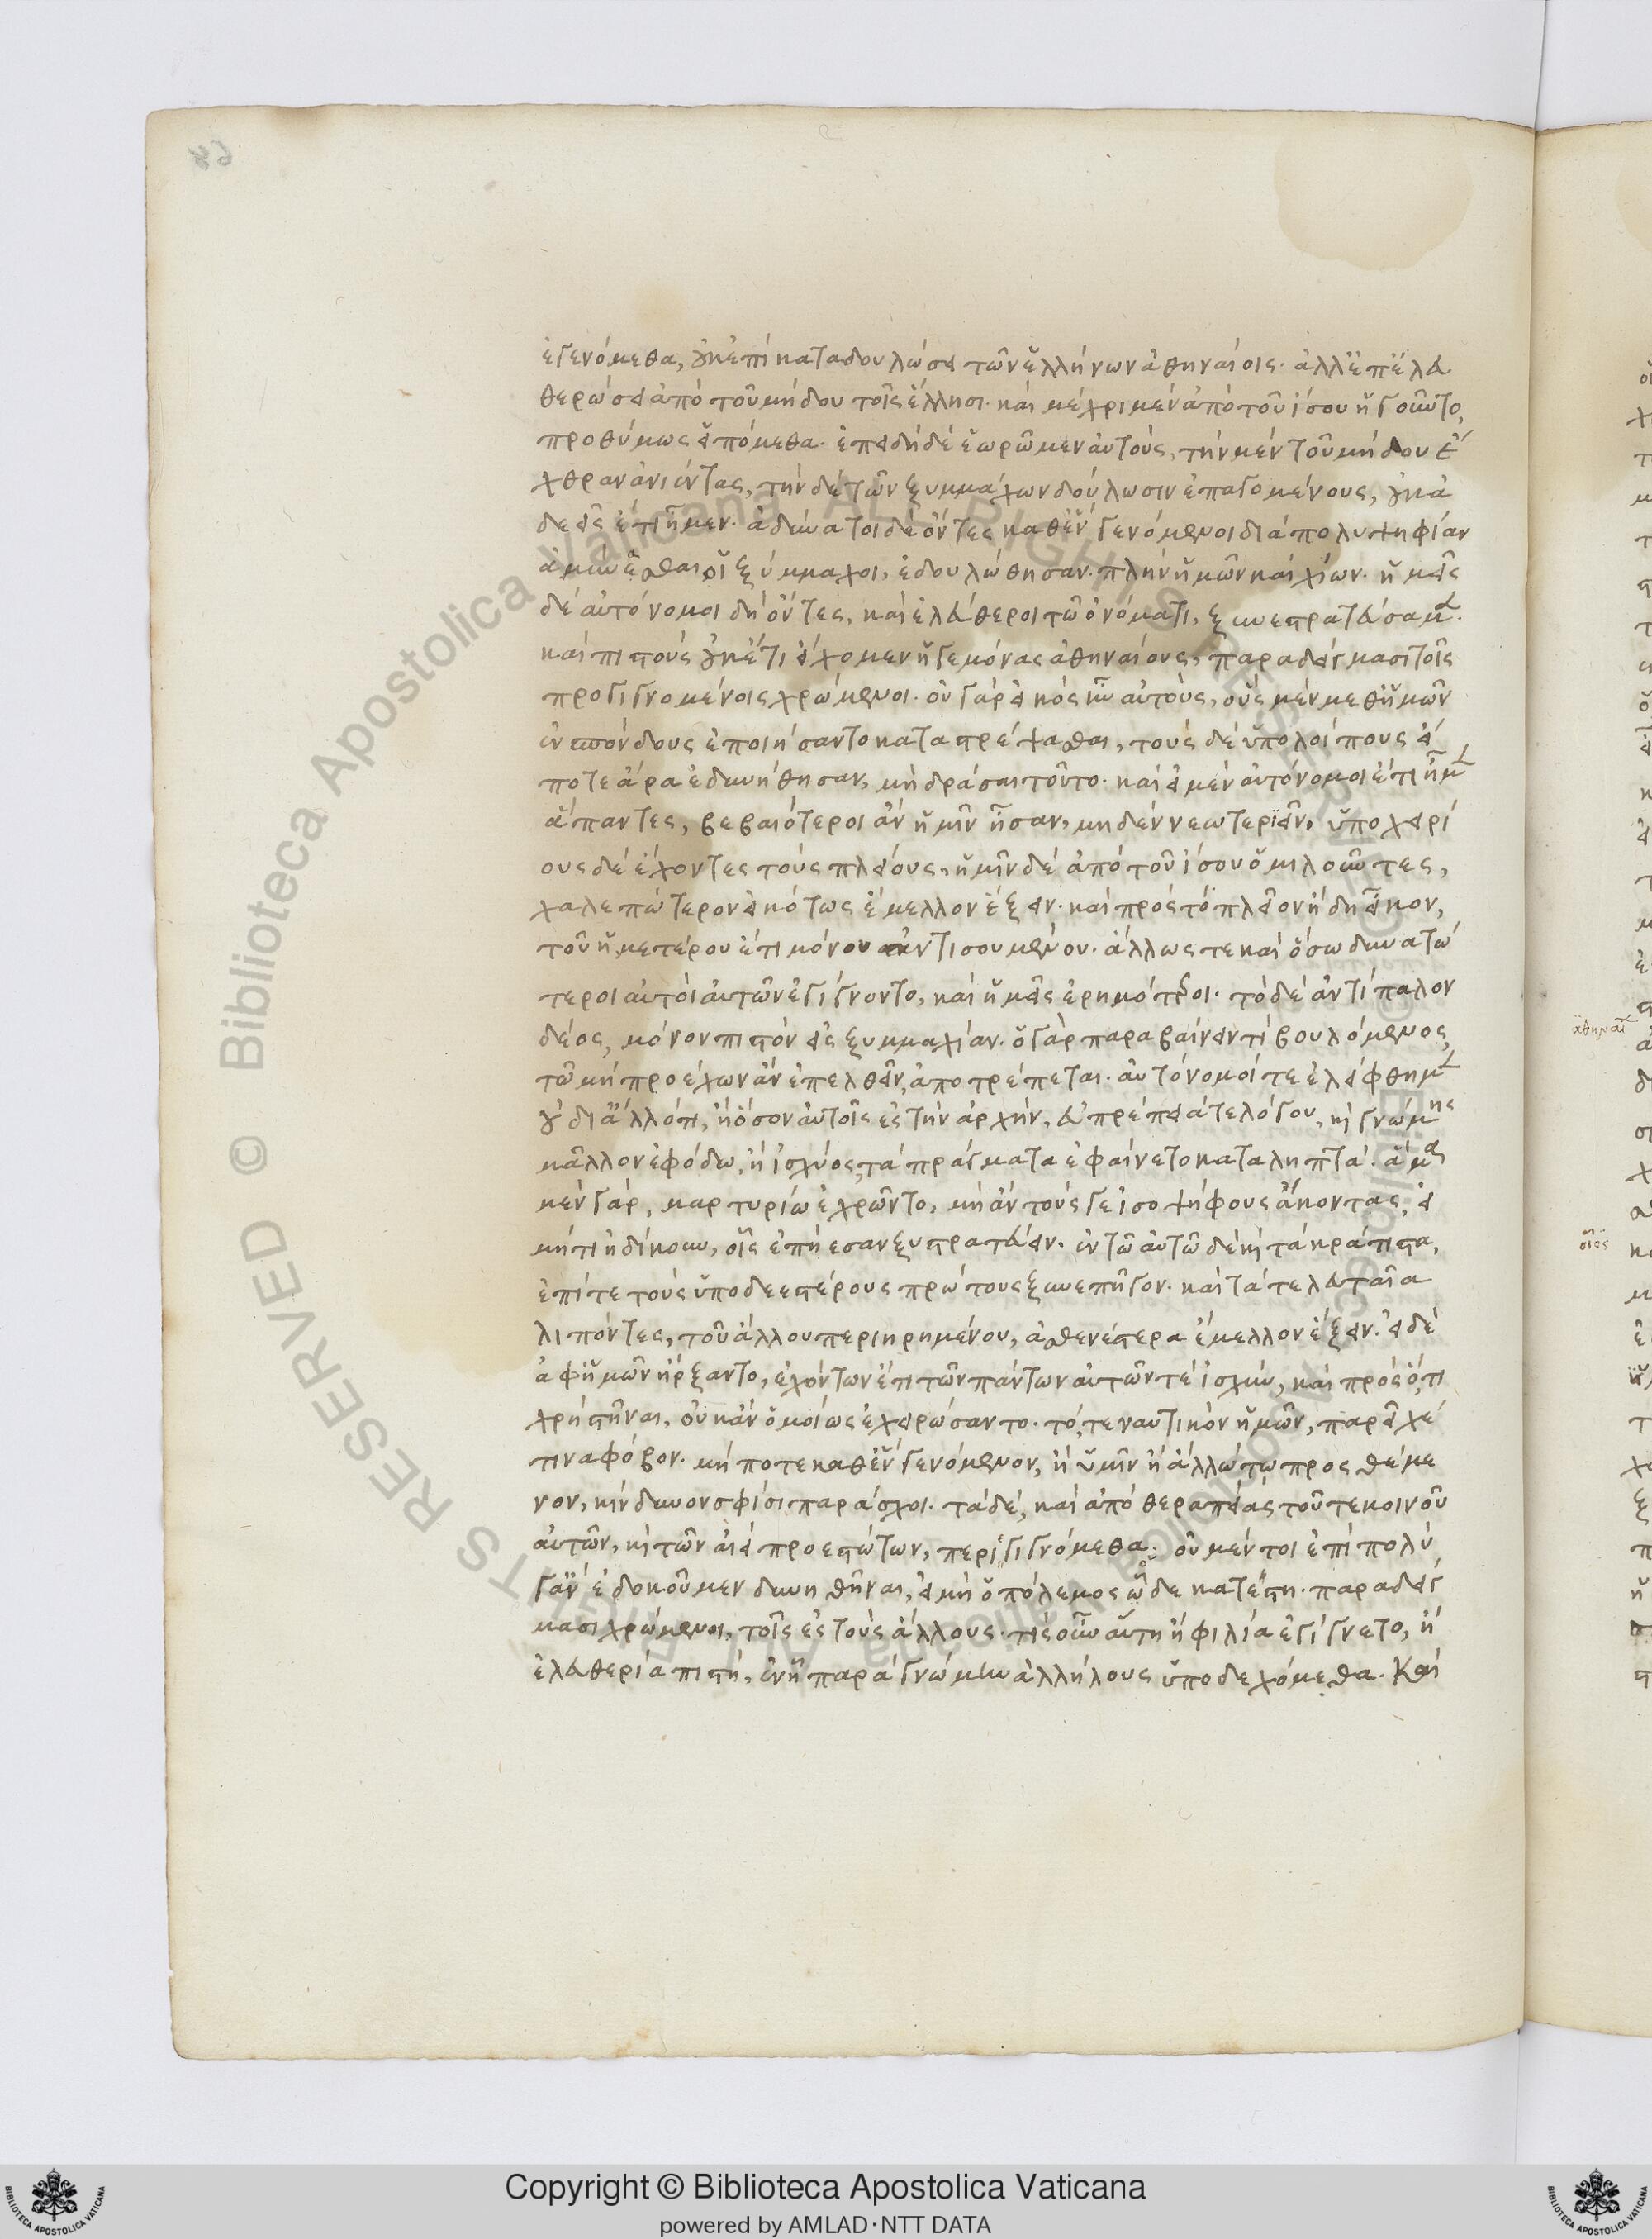 ἐγενόμεθα, οὐκ ἐπὶ καταδουλώσει τῶν ἑλλήνων ἀθηναίοις· ἀλλ' ἐπ' ἐλευ
θερώσει ἀπὸ τοῦ μήδου τοῖς ἕλλησι· καὶ μέχρι μὲν ἀπὸ τοῦ ἴσου ἡγοῦντο,
προθύμως εἱπόμεθα· ἐπειδὴ δὲ ἑωρῶμεν αὐτοὺς, τὴν μὲν τοῦ μήδου ἔ
χθραν ἀνιέντας, τὴν δὲ τῶν ξυμμάχων δούλωσιν ἐπαγομένους, οὐκ ἀ
δεεῖς ἔτι ἦμεν· ἀδύνατοι δὲ ὄντες καθ' ἓν γενόμενοι διὰ πολυψηφίαν
ἀμύνεσθαι οἱ ξύμμαχοι, ἐδουλώθησαν· πλὴν ἡμῶν καὶ χίων· ἡμεῖς
δὲ αὐτόνομοι δὴ ὄντες, καὶ ἐλεύθεροι τῷ ὀνόματι, ξυνεστρατεύσαμεν·
καὶ πιστοὺς οὐκέτι εἴχομεν ἡγεμόνας ἀθηναίους, παραδείγμασι τοῖς
προγιγνομένοις χρώμενοι· οὐ γὰρ εἰκὸς ἦν αὐτοὺς, οὓς μὲν μεθ' ἡμῶν
ἐνσπόνδους ἐποιήσαντο καταστρέψασθαι, τοὺς δὲ ὑπολοίπους εἴ
ποτε ἄρα ἐδυνήθησαν, μὴ δράσαι τοῦτο· καὶ εἰ μὲν αὐτόνομοι ἔτι ἦμεν
ἅπαντες, βεβαιότεροι ἂν ἡμῖν ἦσαν, μηδὲν νεωτεριεῖν, ὑποχειρί
ους δὲ ἔχοντες τοὺς πλείους, ἡμῖν δὲ ἀπὸ τοῦ ἴσου ὁμιλοῦντες,
χαλεπώτερον εἰκότως ἔμελλον ἕξειν· καὶ πρὸς τὸ πλεῖον ἤδη εἶκον,
τοῦ ἡμετέρου ἔτι μόνου ἀντισουμένου· ἄλλως τε καὶ ὅσω δυνατώ
τεροι αὐτοὶ αὐτῶν ἐγίγνοντο, καὶ ἡμεῖς ἐρημότεροι· τὸ δὲ ἀντίπαλον
δέος, μόνον πιστὸν εἰς ξυμμαχίαν· ὁ γὰρ παραβαίνειν τι βουλόμενος,
τῶ μὴ προέχων ἂν ἐπελθεῖν, ἀποτρέπεται· αὐτόνομοί τε ἐλείφθημεν
οὐ δι' ἄλλό τι, ἢ ὅσον αὐτοῖς ἐς τὴν ἀρχὴν, εὐπρεπείᾳ τε λόγου, καὶ γνώμης
μᾶλλον ἐφόδω, ἢ ἰσχύος, τὰ πράγματα ἐφαίνετο καταληπτά· ἅμα
μὲν γὰρ, μαρτυρίω ἐχρῶντο, μὴ ἂν τούς γε ἰσοψήφους ἄκοντας, εἰ
μή τι ἠδίκουν, οἷς ἐπῄεσαν ξυστρατεύειν· ἐν τῶ αὐτῶ δὲ καὶ τὰ κράτιστα,
ἐπί τε τοὺς ὑποδεεστέρους πρώτους ξυνεπῆγον· καὶ τὰ τελευταῖα
λιπόντες, τοῦ ἄλλου περιῃρημένου, ἀσθενέστερα ἔμελλον ἕξειν· εἰ δὲ
ἀφ' ἡμῶν ἤρξαντο, ἐχόντων ἔτι τῶν πάντων αὐτῶν τε ἰσχὺν, καὶ πρὸς ὅ,τι
χρὴ στῆναι, οὐκ ἂν ὁμοίως ἐχειρώσαντο· τό, τε ναυτικὸν ἡμῶν, παρεῖχέ
τινα φόβον· μή ποτε καθ' ἓν γενόμενον, ἢ ὑμῖν ἢ ἄλλῳ τῳ προσθέμε
νον, κίνδυνον σφίσι παράσχοι· τὰ δὲ, καὶ ἀπὸ θεραπείας τοῦ τε κοινοῦ
αὐτῶν, καὶ τῶν αἰεὶ προεστώτων, περιγιγνόμεθα· οὐ μέντοι ἐπὶ πολύ
γ' ἂν ἐδοκοῦμεν δυνηθῆναι, εἰ μὴ ὁ πόλεμος ὧδε κατέστη· παραδείγ
μασι χρώμενοι, τοῖς ἐς τοὺς ἄλλους· τίς οὖν αὕτη ἡ φιλία ἐγίγνετο, ἢ
ἐλευθερία πιστή, ἐν ᾗ παρὰ γνώμην ἀλλήλους ὑποδεχόμεθα· Καὶ
Copyright © Biblioteca Apostolica Vaticana
powered by AMLAD·NTT DATA